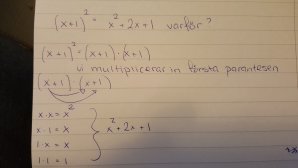 (x+1)² = x²+2x+1 varför?
(x+1)² = (x+1)·(x+1)
vi multiplicerar in första parantesen
(x+1)·(x+1)
x·x = x²
x·1 = x
1·x = x
1·1 = 1
x²+2x+1